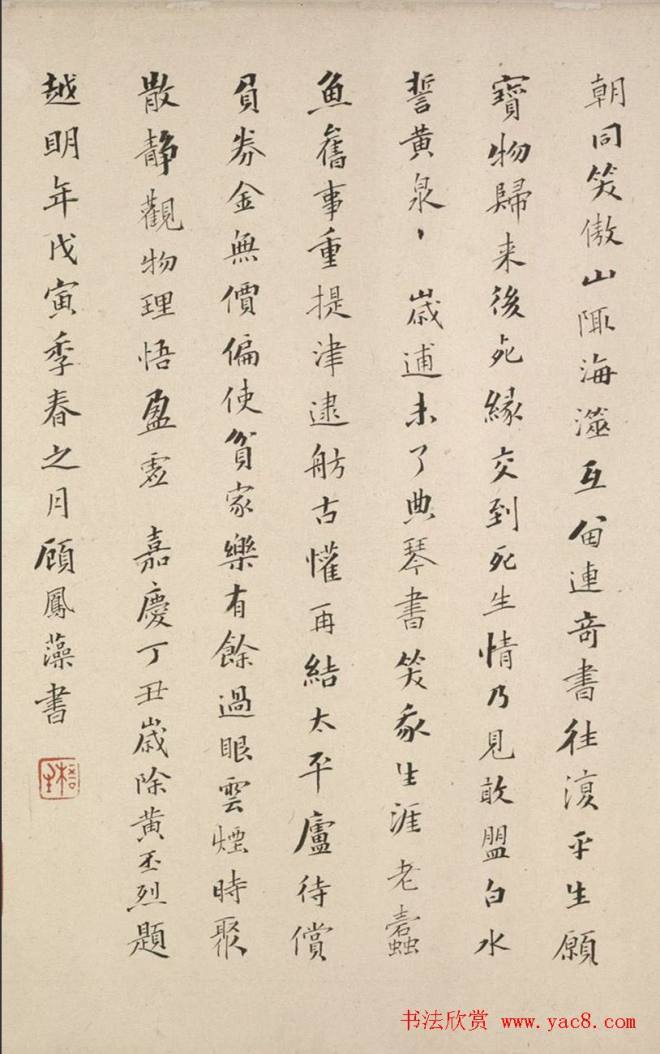 朝同笑傲山陬海澨互留連奇書往復平生願
寶物歸来後死緣交到死生情乃見敢盟白水
誓黃泉丶 歲逋未了典琴書笑我生涯老蠹
魚舊事重提津逮舫古懽再結太平廬待償
負券金無價偏使貧家樂有餘過眼雲煙時聚
散静觀物理悟盈虛 嘉慶丁丑歲除黃丕烈題
越明年戊寅季春之月顧鳳藻書
书法欣赏 www.yac8.com